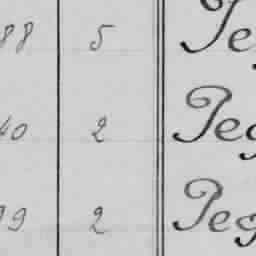 88 5 Pe
40 2 Peg
99 2 Peg